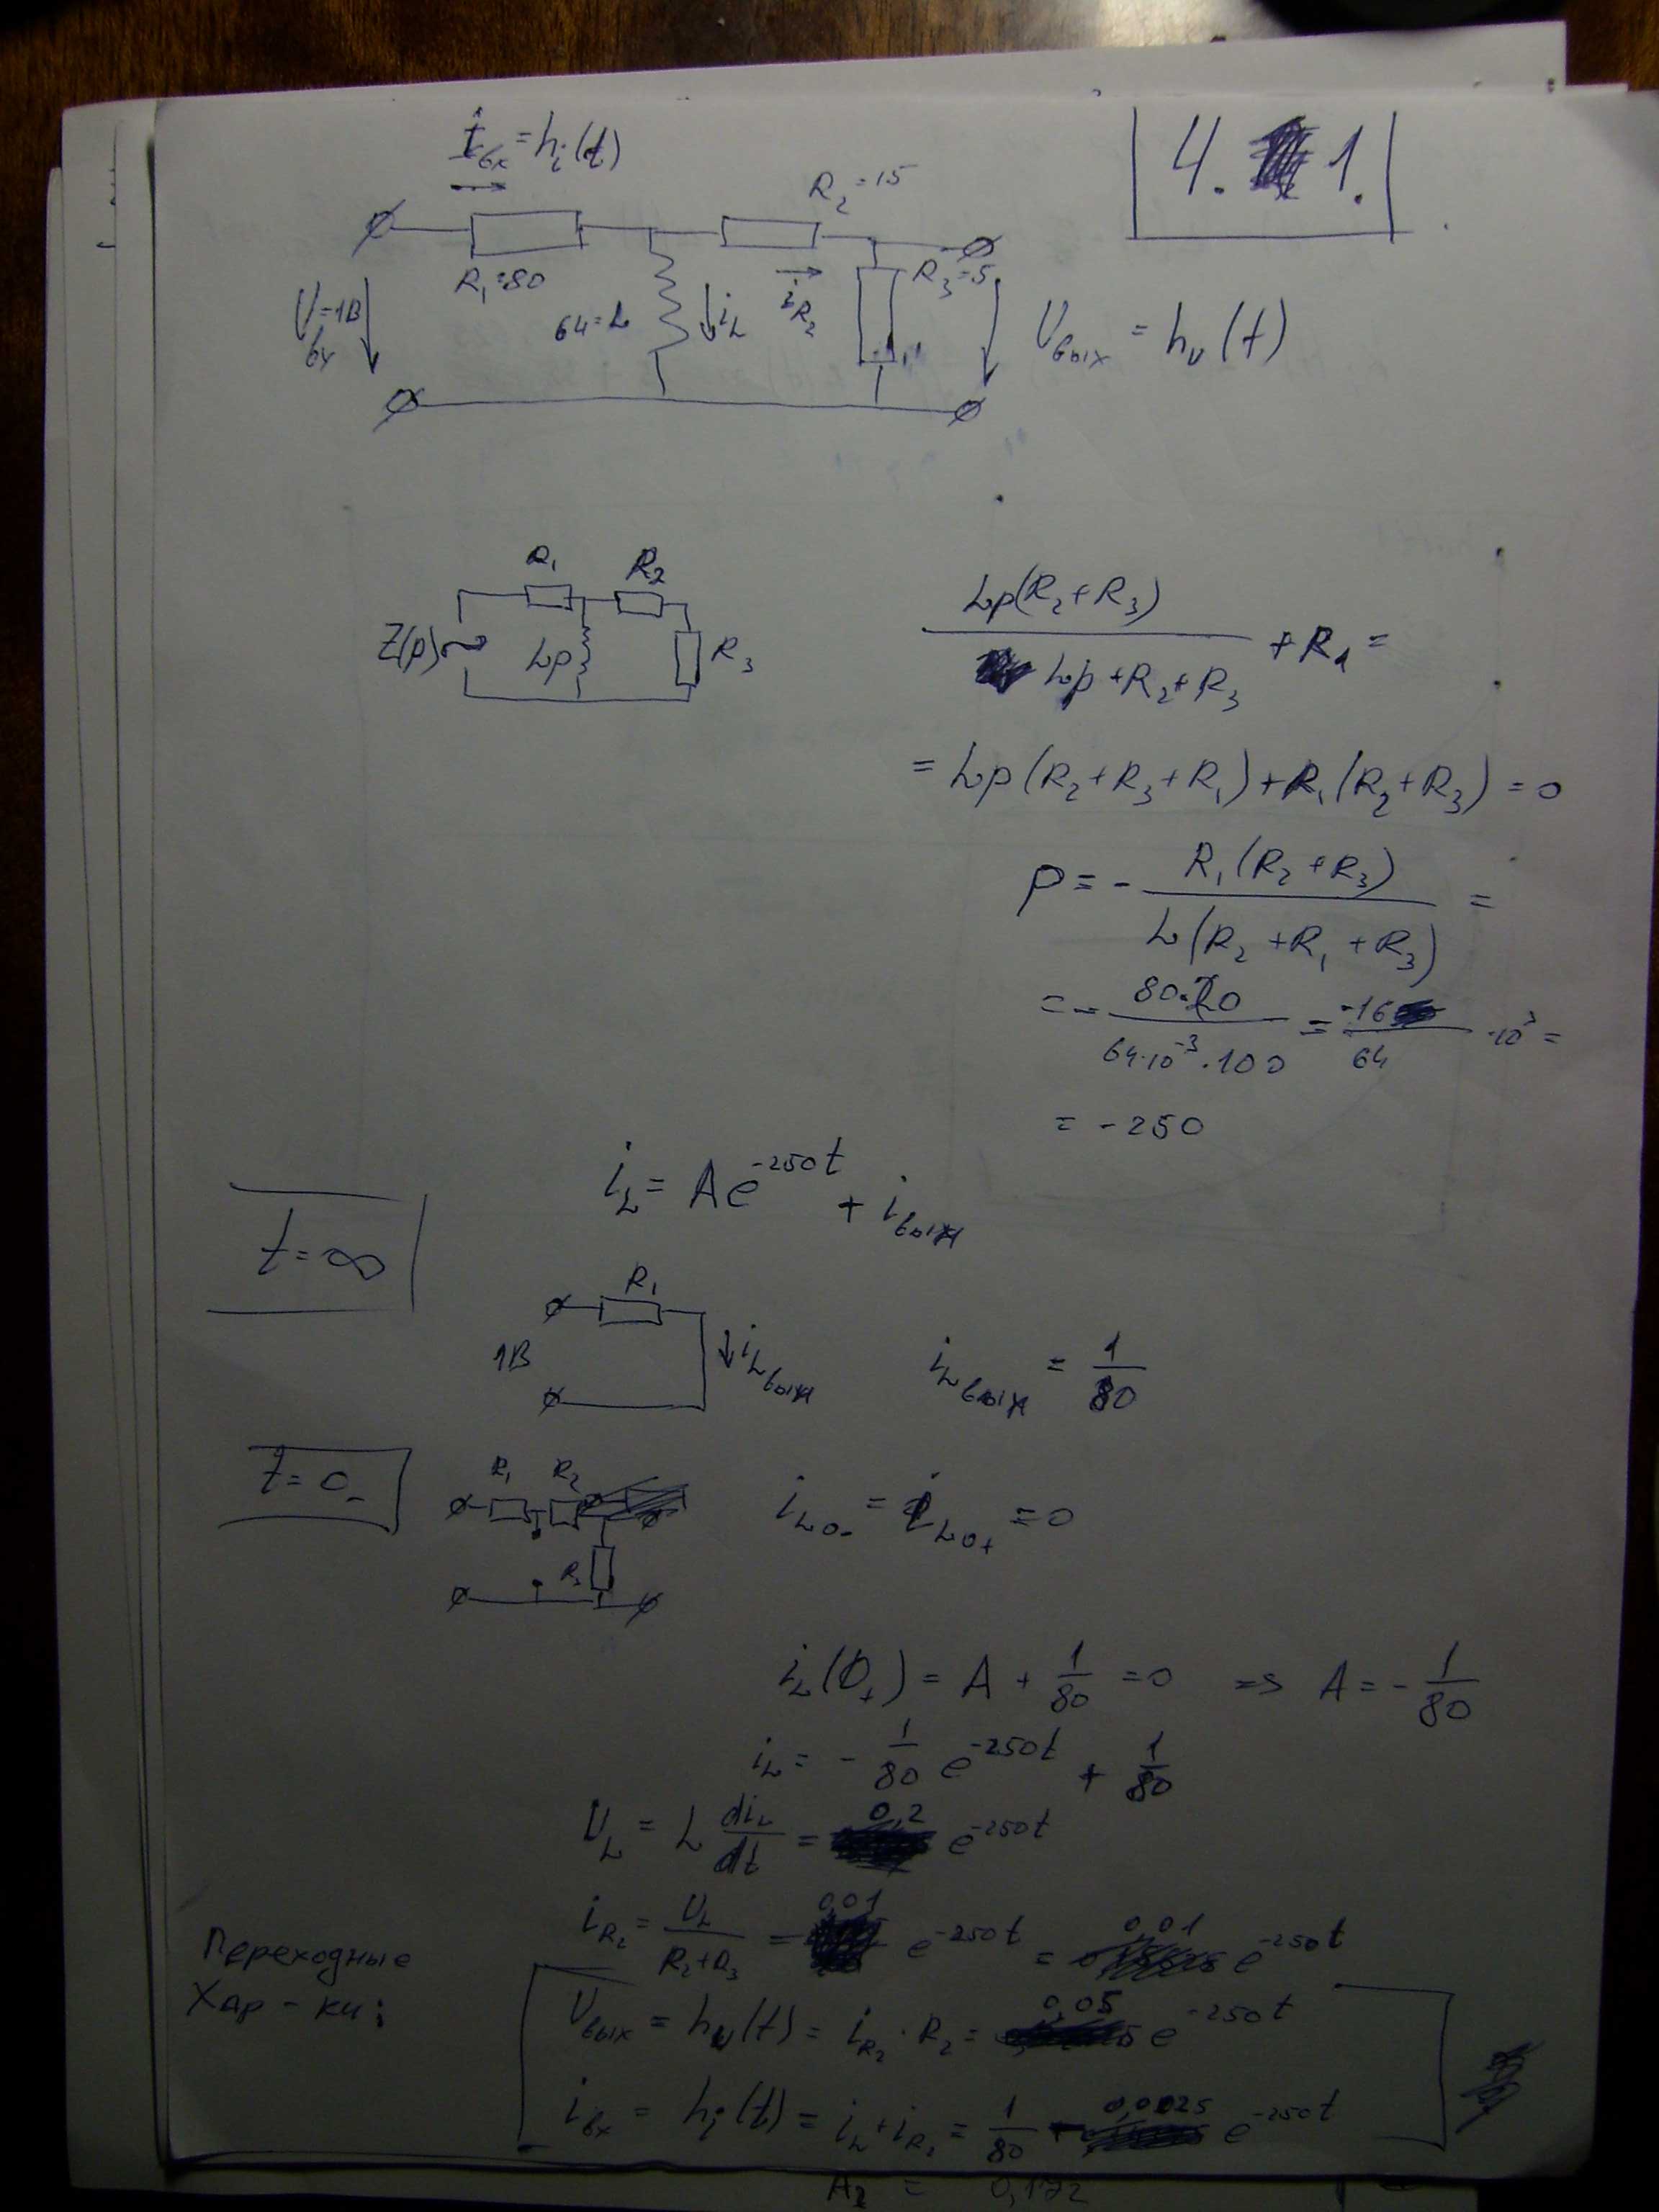 4. 1.
iвх = hi(t)
R₂=15
R₁=80
R₃=5
Uвх=1В
64=L
iL
iR₂
Uвых = hu(t)
R₁
R₂
Z(p)
Lp
R₃
Lp(R₂+R₃) / (Lp+R₂+R₃) + R₁ =
= Lp(R₂+R₃+R₁)+R₁(R₂+R₃) = 0
p = - R₁(R₂+R₃) / L(R₂+R₁+R₃) =
= - 80·20 / 64·10⁻³·100 = -16 / 64 ·10³ =
= -250
iL = Ae^-250t + iвын
t=∞
R₁
1В
iLвын
iLвын = 1/80
t=0₋
R₁
R₂
R₃
iL0₋ = iL0₊ = 0
iL(0₊) = A + 1/80 = 0 => A = - 1/80
iL = - 1/80 e^-250t + 1/80
UL = L diL/dt = 0,2 e^-250t
iR₂ = UL / R₂+R₃ = 0,01 e^-250t = 0,01 e^-250t
Переходные
Хар-ки:
Uвых = hu(t) = iR₂ · R₂ = 0,05 e^-250t
iвх = hi(t) = iL+iR₂ = 1/80 - 0,0025 e^-250t
A₂ = 0,172